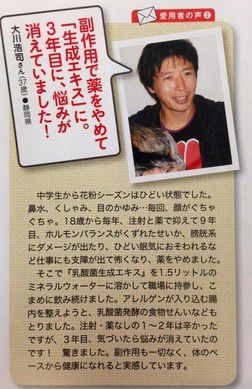 愛用者の声❷
副作用で薬をやめて
「生成エキス」に。
３年目に、悩みが
消えていました！
大川浩司さん（37歳）●静岡県
中学生から花粉シーズンはひどい状態でした。
鼻水、くしゃみ、目のかゆみ…毎回、顔がぐちゃ
ぐちゃ。18歳から毎年、注射と薬で抑えて９年
目、ホルモンバランスがくずれたせいか、膀胱系
にダメージが出たり、ひどい眠気におそわれるな
ど仕事にも支障が出て怖くなり、薬をやめました。
そこで『乳酸菌生成エキス』を1.5リットルの
ミネラルウォーターに溶かして職場に持参し、こ
まめに飲み続けました。アレルゲンが入り込む腸
内を整えようと、乳酸菌発酵の食物せんいなども
とりました。注射・薬なしの１〜２年は辛かった
ですが、３年目、気づいたら悩みが消えていたの
です！ 驚きました。副作用も一切なく、体のベ
ースから健康になれると実感しています。